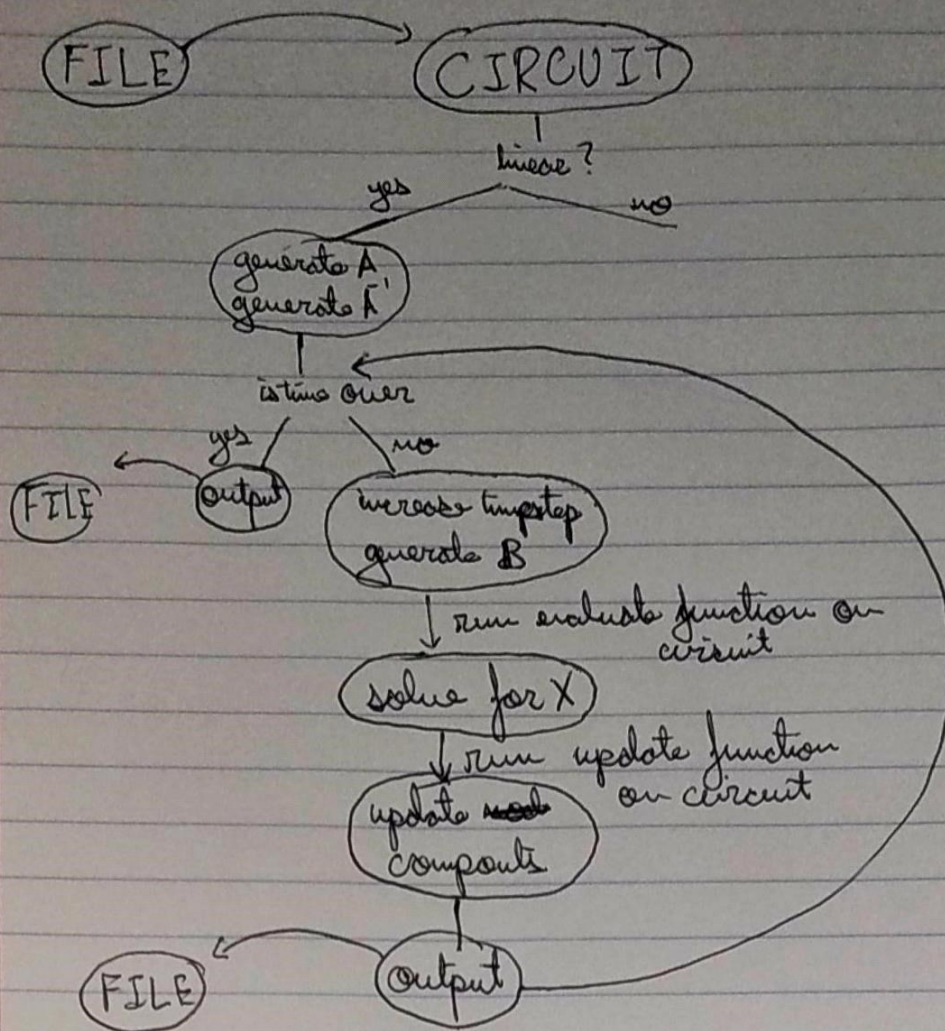 FILE
CIRCUIT
linear?
yes
no
generate A
generate A'
is time over
yes
no
FILE
output
increase timestep
generate B
run evaluate function on
circuit
solve for X
run update function
on circuit
update
componts
output
FILE